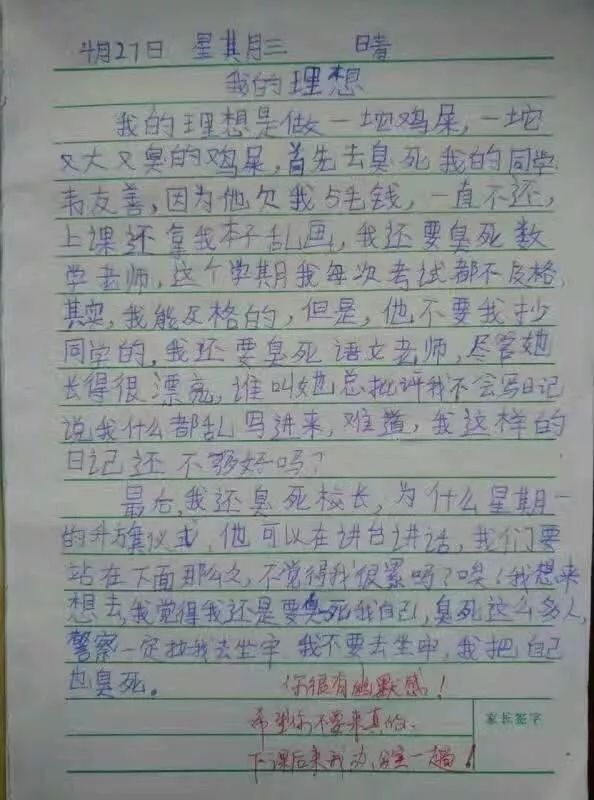 4月27日 星其月三 晴
我的理想
我的理想是做一坨鸡屎，一坨
又大又臭的鸡屎，首先去臭死我的同学
韦友善，因为他欠我5毛钱，一直不还，
上课还拿我本子乱画，我还要臭死数
学老师，这个学期我每次考试都不及格，
其实，我能及格的，但是，他不要我抄
同学的，我还要臭死语文老师，尽管她
长得很漂亮，谁叫她总批评我不会写日记
说我什么都乱写进来，难道，我这样的
日记还不够好吗？
最后，我还臭死校长，为什么星期一
的升旗仪式，他可以在讲台讲话，我们要
站在下面那么久，不觉得我很累吗？唉！我想来
想去，我觉得我还是要臭死我自己，臭死这么多人，
警察一定拉我去坐牢，我不要去坐牢，我把自己
也臭死。
你很有幽默感！
希望你不要来真的.
家长签字
下课后来我办公室一趟！